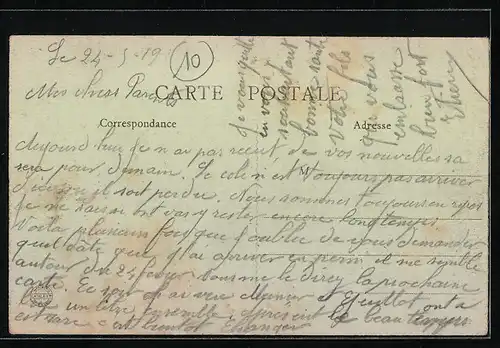 Le 24-5-19
10
Mes chers Parents
CARTE POSTALE
Correspondance
Adresse
Aujourd'hui je n'ai pas recut de vos nouvelles sa
sera pour demain. Le coli n'est toujours pas arriver
M
il soit perdu. Nous sommes toujours en repos
je ne sais si ont vas y rester encore longtemps
Voila plusieurs fois que j'oublie de vous demander
quel date que j'ai arriver en permi il me semble
autour du 24 fevrier vous me le direz la prochaine
carte. Ce soir j'ai vue
bu un litre ensemble apres
est rare c'est bientot
Je vous quitte
en vous
souhaitant
bonne sante
Votre fils
qui vous
embrasse
bien fort